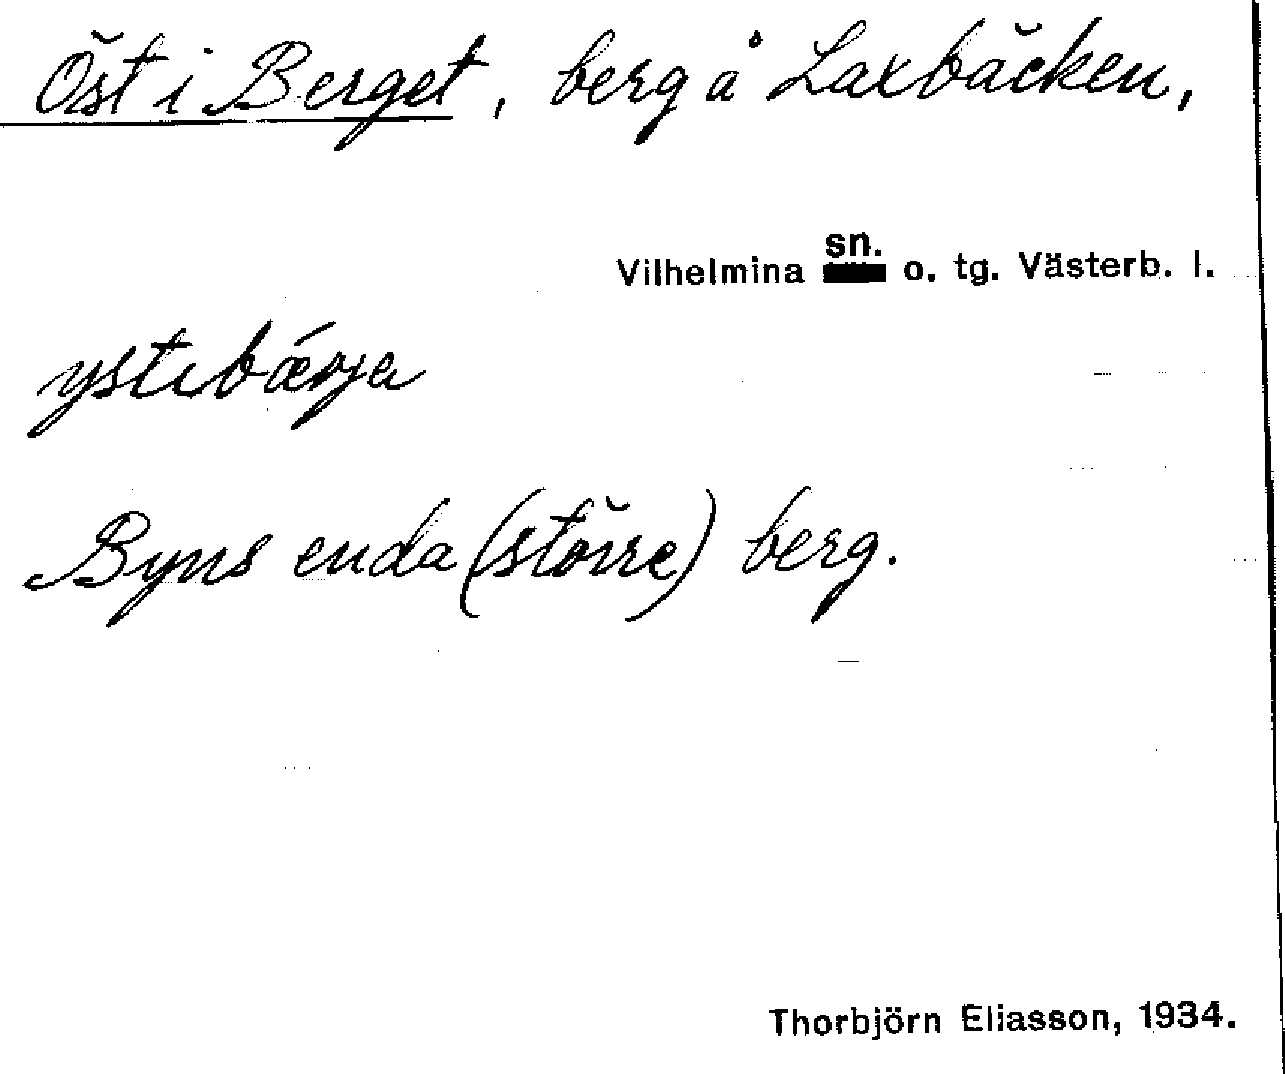 Öst i Berget, berg å Laxbäcken,
Vilhelmina sn. o. tg. Västerb. l.
ystɩbǽrja
Byns enda (större) berg.
Thorbjörn Eliasson, 1934.